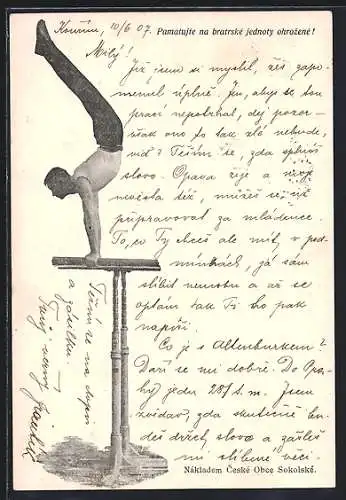 Kouřim, 10/6 07.
Pamatujte na bratrské jednoty ohrožené!
Milý!
Již jsem si myslil, žes zapo-
menul úplně. Jen, abys se tou
prací nepotrhal, dej pozor –
však ono to tak zlé nebude,
viď? Těším se, zda splníš
slovo. Opava žije a
též, můžeš se již
připravovat za mládence.
To, co Ty chceš ale mít, v pod-
mínkách, já sám
slíbit nemohu a až se
optám tak Ti ho pak
napíši.
Co je s Altenburkem?
Daří se mi dobře. Do Pra-
hy jedu 28/t. m. Jsem
zvědav, zda skutečně bu-
deš držet slovo a zašleš
mi slíbené věci.
Těším se na dopis
a zdulku
Tvůj věrný
Nákladem České Obce Sokolské.